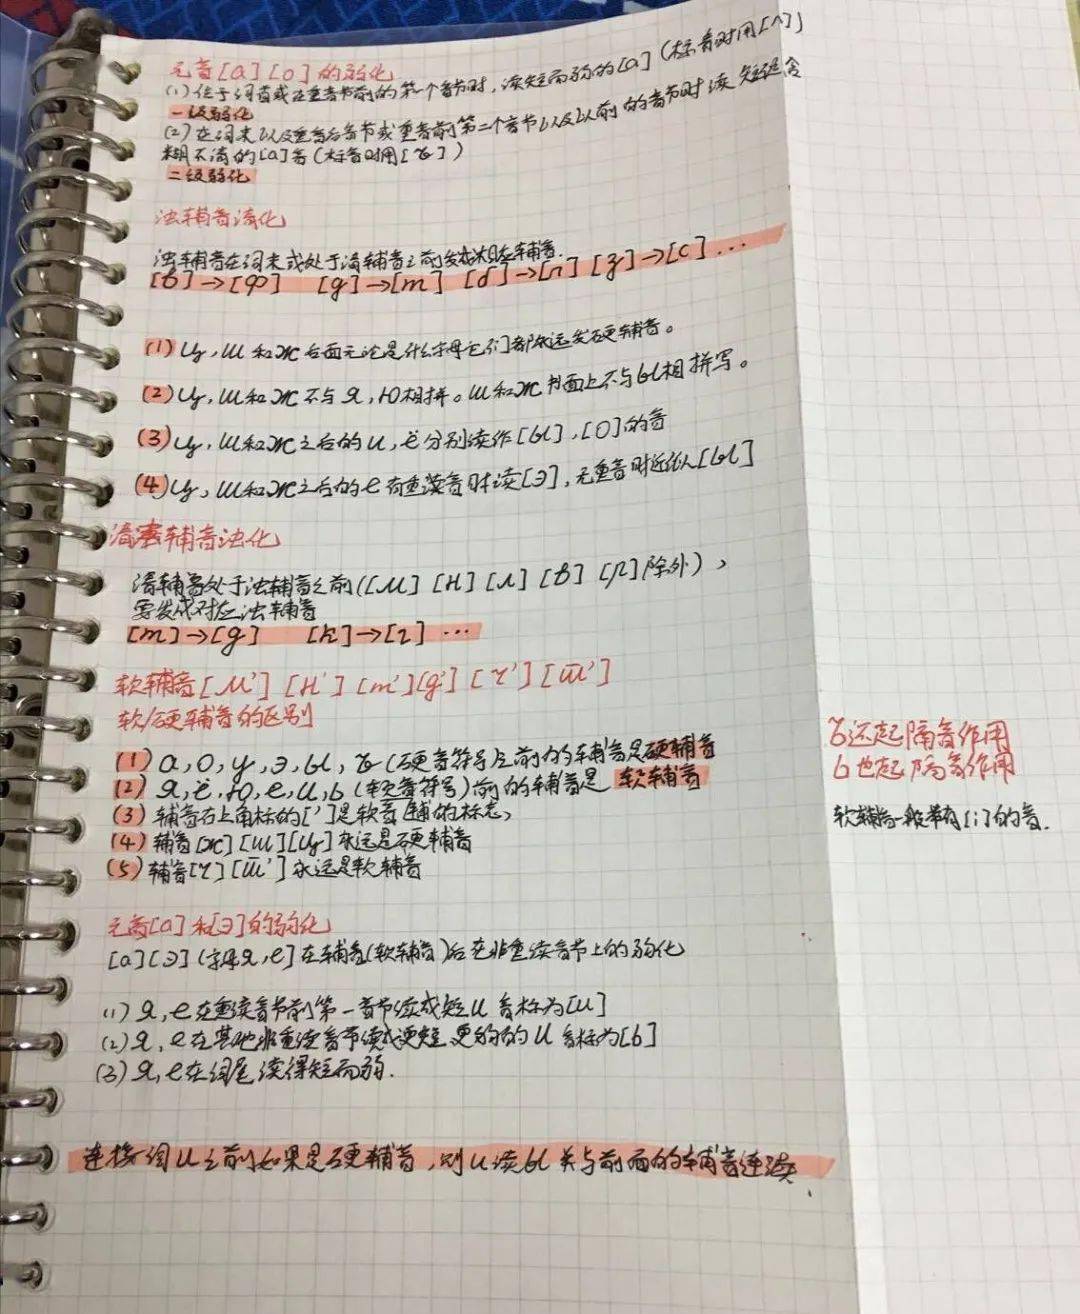 元音[а][о]的弱化
(1)位于词首或在重音节前的第一个音节时，读短而弱的[а](标音时用[Λ])
一级弱化
(2)在词末以及重音后音节或重音前第二个音节以及以前的音节时读短促含
糊不清的[а]音(标音时用[ъ])
二级弱化
浊辅音清化
浊辅音在词末或处于清辅音之前发成对应辅音.
[в]→[ф] [д]→[т] [б]→[п] [з]→[с] ...
(1)ц, ш和ж后面无论是什么字母它们都永远发硬辅音。
(2)ц, ш和ж不与я, ю相拼。ш和ж书面上不与ы相拼写。
(3)ц, ш和ж之后的и, ё分别读作[ы], [о]的音
(4)ц, ш和ж之后的е有重读音时读[э], 无重音时近似[ы]
清辅音浊化
清辅音处于浊辅音之前([м] [н] [л] [в] [р]除外)，
要发成对应浊辅音
[т]→[д] [к]→[г] ...
软辅音[м'] [н'] [т'][д'] [ч'] [ш̄']
软/硬辅音的区别
(1) а, о, у, э, ы, ъ(硬音符号)之前的辅音是硬辅音
(2) я, ё, ю, е, и, ь(软音符号)前的辅音是 软辅音
(3) 辅音右上角标的[']是软音的标志,
(4) 辅音[ж][ш][ц]永远是硬辅音
(5) 辅音[ч][ш̄']永远是软辅音
ъ还起隔音作用
ь也起隔音作用
软辅音一般带有[i]的音.
元音[а]和[э]的弱化
[а][э](字母я, е]在辅音(软辅音)后在非重读音节上的弱化
(1) я, е在重读音节前第一音节读成短и 音标为[и]
(2) я, е在其他非重读音节读成更短,更弱的и 音标为[ь]
(3) я, е在词尾读得短而弱.
连接词и之前如果是硬辅音，则и读ы并与前面的辅音连读.